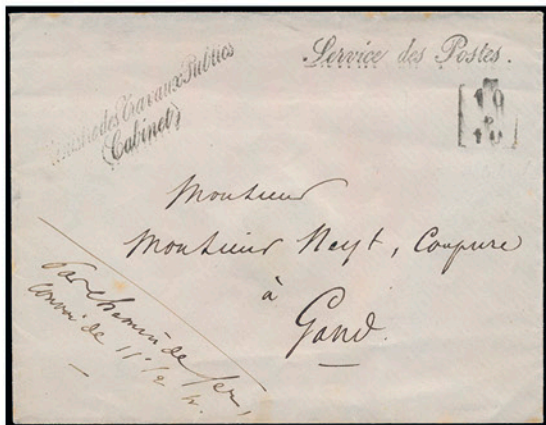 Service des Postes.
Ministre des Travaux Publics
(Cabinet)
10
10
Monsieur
Monsieur Neyt, Coupure
à
Gand.
Par chemin de fer,
convoi de 11 1/2 h.